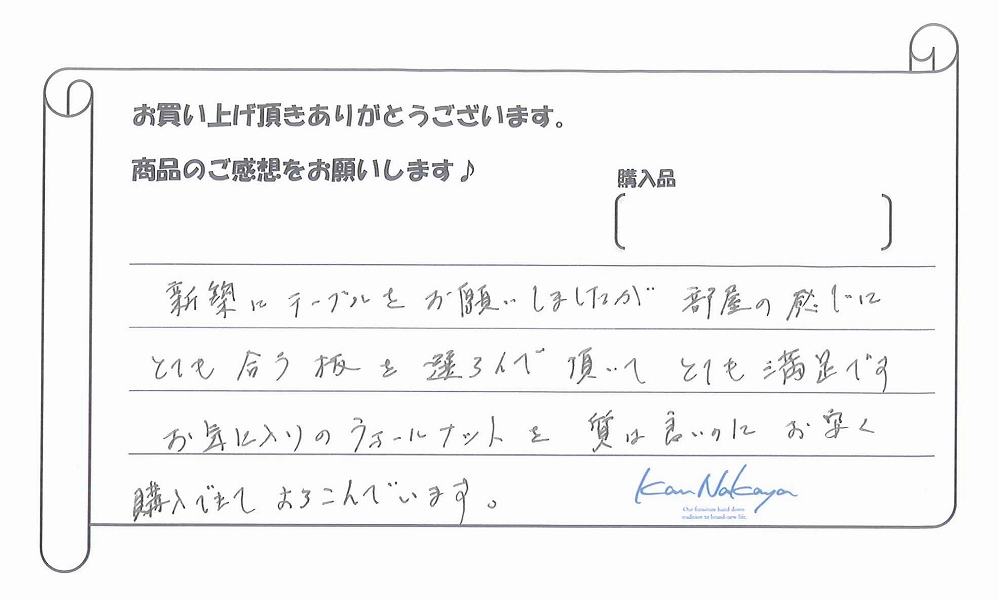 お買い上げ頂きありがとうございます。
商品のご感想をお願いします♪
購入品
新築にテーブルをお願いしましたが 部屋の感じに
とても 合う 板を 選ろんで 頂いて とても 満足です
お気に入りの ウォールナットを 質は良いのに お安く
購入できて よろこんでいます。
Kan Nakaya
Our furniture hand down
tradition to brand-new life.